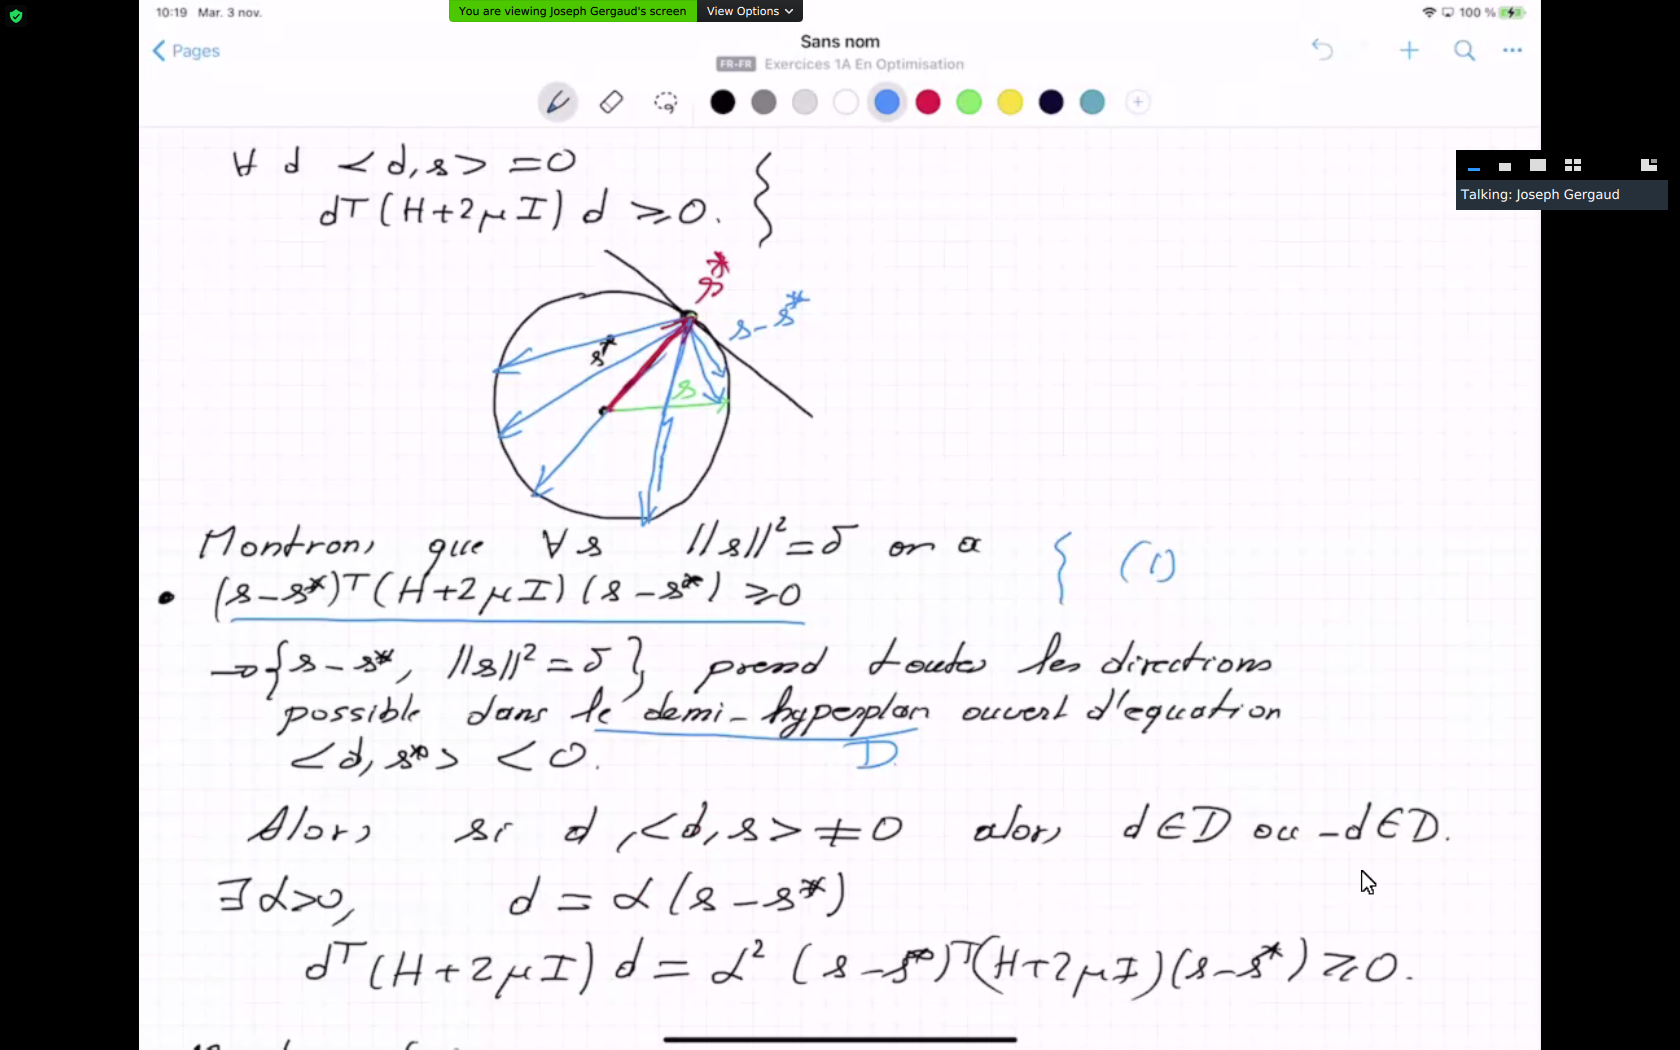 10:19 Mar. 3 nov.
You are viewing Joseph Gergaud's screen
View Options
100 %
Pages
Sans nom
FR-FR Exercices 1A En Optimisation
Talking: Joseph Gergaud
∀ d <d, s> = 0
dᵀ(H+2μI) d ⩾ 0.
s*
s - s*
s*
s
Montrons que ∀ s ||s||² = δ on a
(s-s*)ᵀ(H+2μI)(s-s*) ⩾ 0
(1)
→ {s-s*, ||s||² = δ}, prend toutes les directions
possible dans le demi-hyperplan ouvert d'equation
<d, s*> < 0.
D
Alors si d, <d, s> ≠ 0 alors d∈D ou -d∈D.
∃ α>0, d = α(s-s*)
dᵀ(H+2μI) d = α² (s-s*)ᵀ(H+2μI)(s-s*) ⩾ 0.